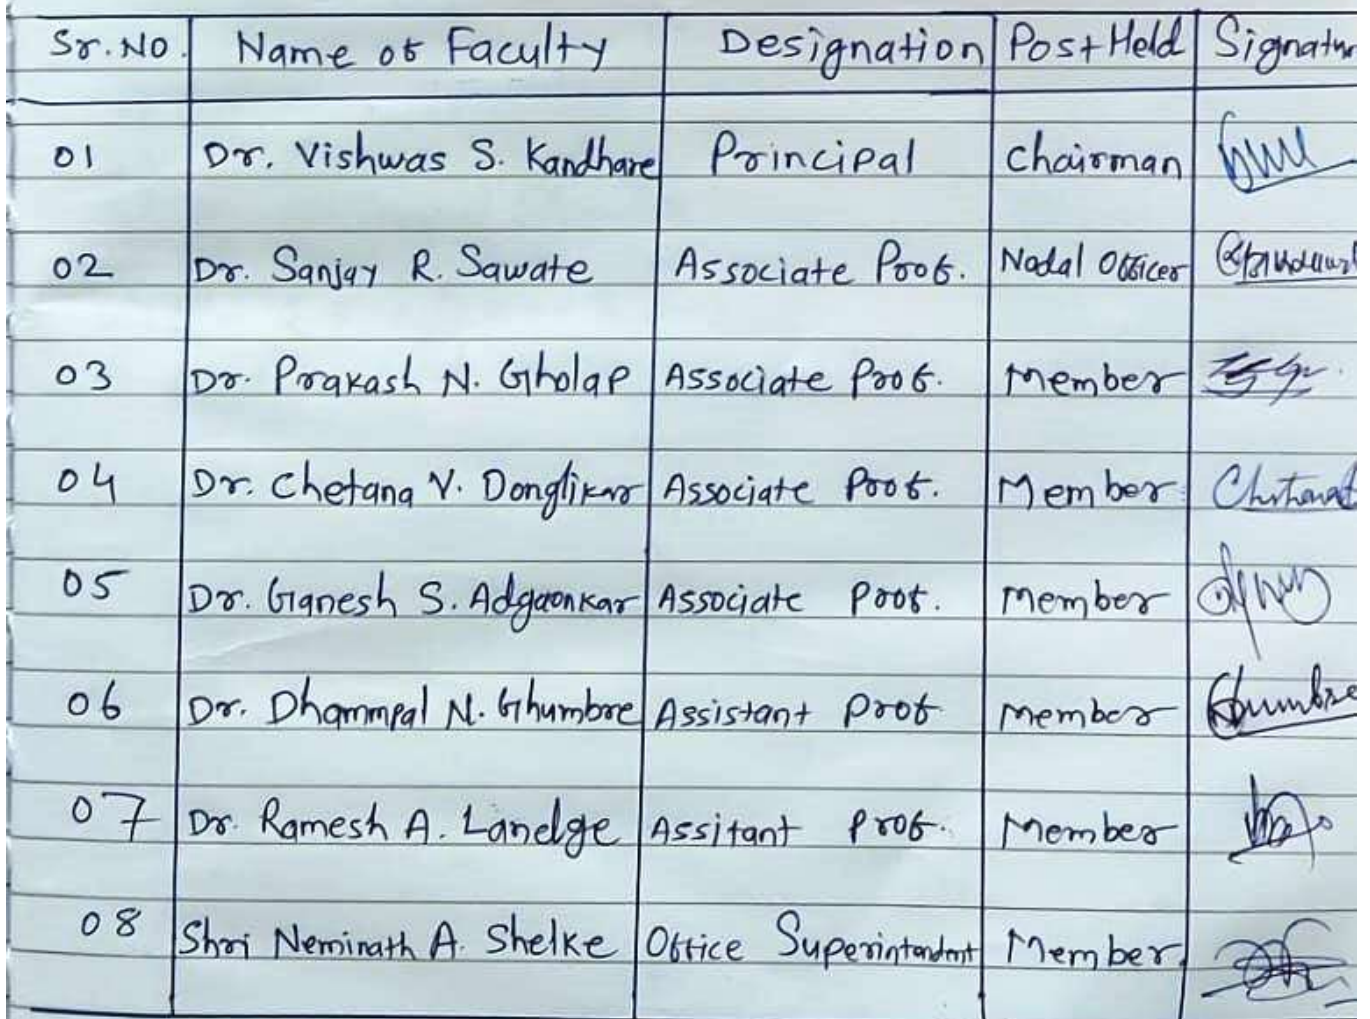 Sr. No. Name of Faculty Designation Post Held Signatur
01 Dr. Vishwas S. Kandhare Principal Chairman
02 Dr. Sanjay R. Sawate Associate Prof. Nodal Officer
03 Dr. Prakash N. Gholap Associate Prof. Member
04 Dr. Chetana V. Donglikar Associate Prof. Member
05 Dr. Ganesh S. Adgaonkar Associate Prof. Member
06 Dr. Dhammpal N. Ghumbre Assistant Prof Member Ghumbre
07 Dr. Ramesh A. Landge Assitant Prof. Member
08 Shri Neminath A. Shelke Office Superintendent Member